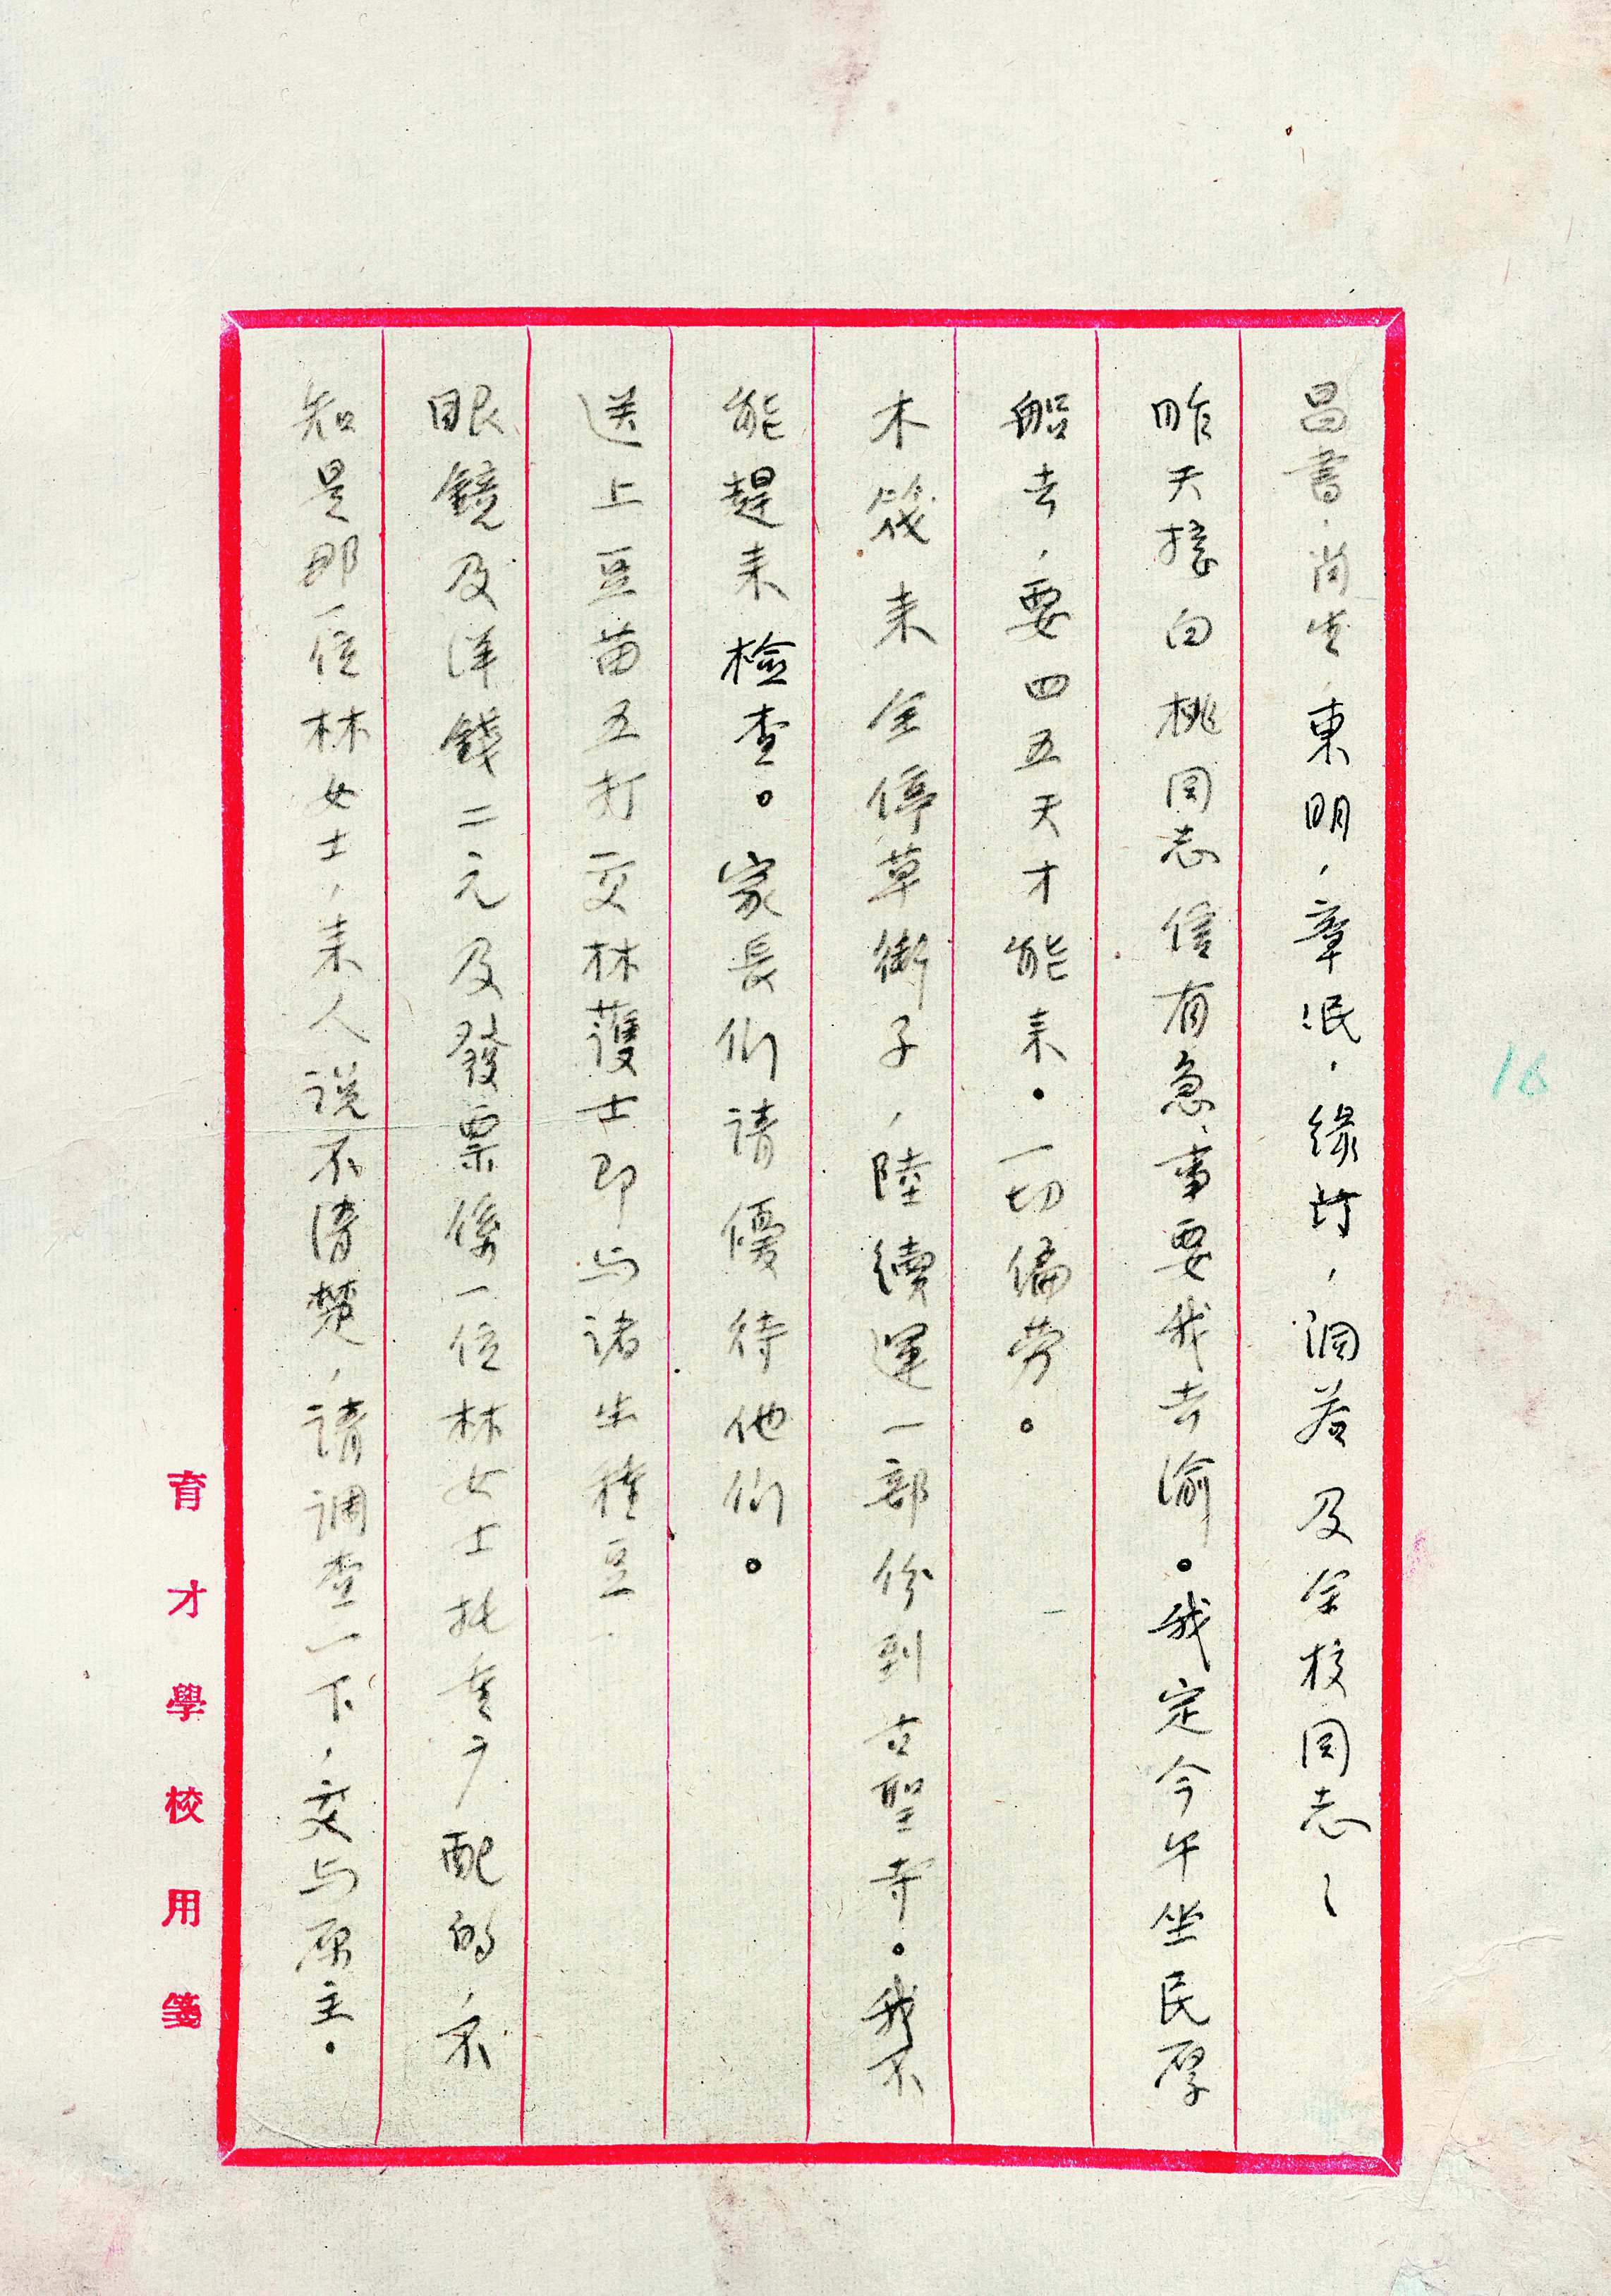 昌書，尚岑，東明，章泯，緣村，洞若及全校同志：
昨天接白桃同志信有急事要我去渝。我定今午坐民厚
船去，要四五天才能來。一切偏勞。
木筏來全停草街子，陸續運一部份到古聖寺。我不
能趕來檢查。家長们請優待他们。
送上豆苗五打交林護士即与諸生種豆。
眼鏡及洋錢二元及發票係一位林女士托重广配的，不
知是那一位林女士，來人説不清楚，請調查一下，交与原主。
育才學校用箋
16